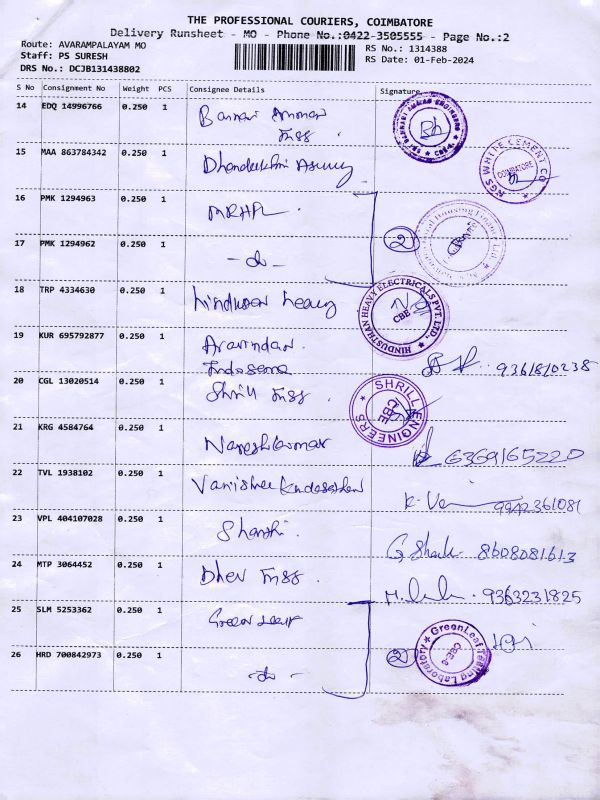 THE PROFESSIONAL COURIERS, COIMBATORE
Delivery Runsheet - MO - Phone No.:0422-3505555 - Page No.:2
Route: AVARAMPALAYAM MO
RS No.: 1314388
Staff: PS SURESH
RS Date: 01-Feb-2024
DRS No.: DCJB131438802
S No Consignment No Weight PCS Consignee Details Signature
14 EDQ 14996766 0.250 1 Bannari Amman
Engg.
SRI BANNARI AMMAN ENGINEERS CBE-4.
15 MAA 863784342 0.250 1
RGS WHITE CEMENT CO
COIMBATORE
16 PMK 1294963 0.250 1 MRHFL.
2
17 PMK 1294962 0.250 1 -do-
18 TRP 4334630 0.250 1 Hindustan Heavy
HINDUSTHAN HEAVY ELECTRICALS PVT. LTD.
CBE
19 KUR 695792877 0.250 1 Aravindan.
9361810238
20 CGL 13020514 0.250 1 Shrill Engg.
SHRILL ENGINEERS
CBE
21 KRG 4584764 0.250 1 Nareshkumar
6369165220
22 TVL 1938102 0.250 1
9942361081
23 VPL 404107028 0.250 1 Shanthi.
8608081613
24 MTP 3064452 0.250 1 Dhev Engg.
9363231825
25 SLM 5253362 0.250 1 Green Leaf
GreenLeaf Testing Laboratory
CBE-6
2
26 HRD 700842973 0.250 1 -do-